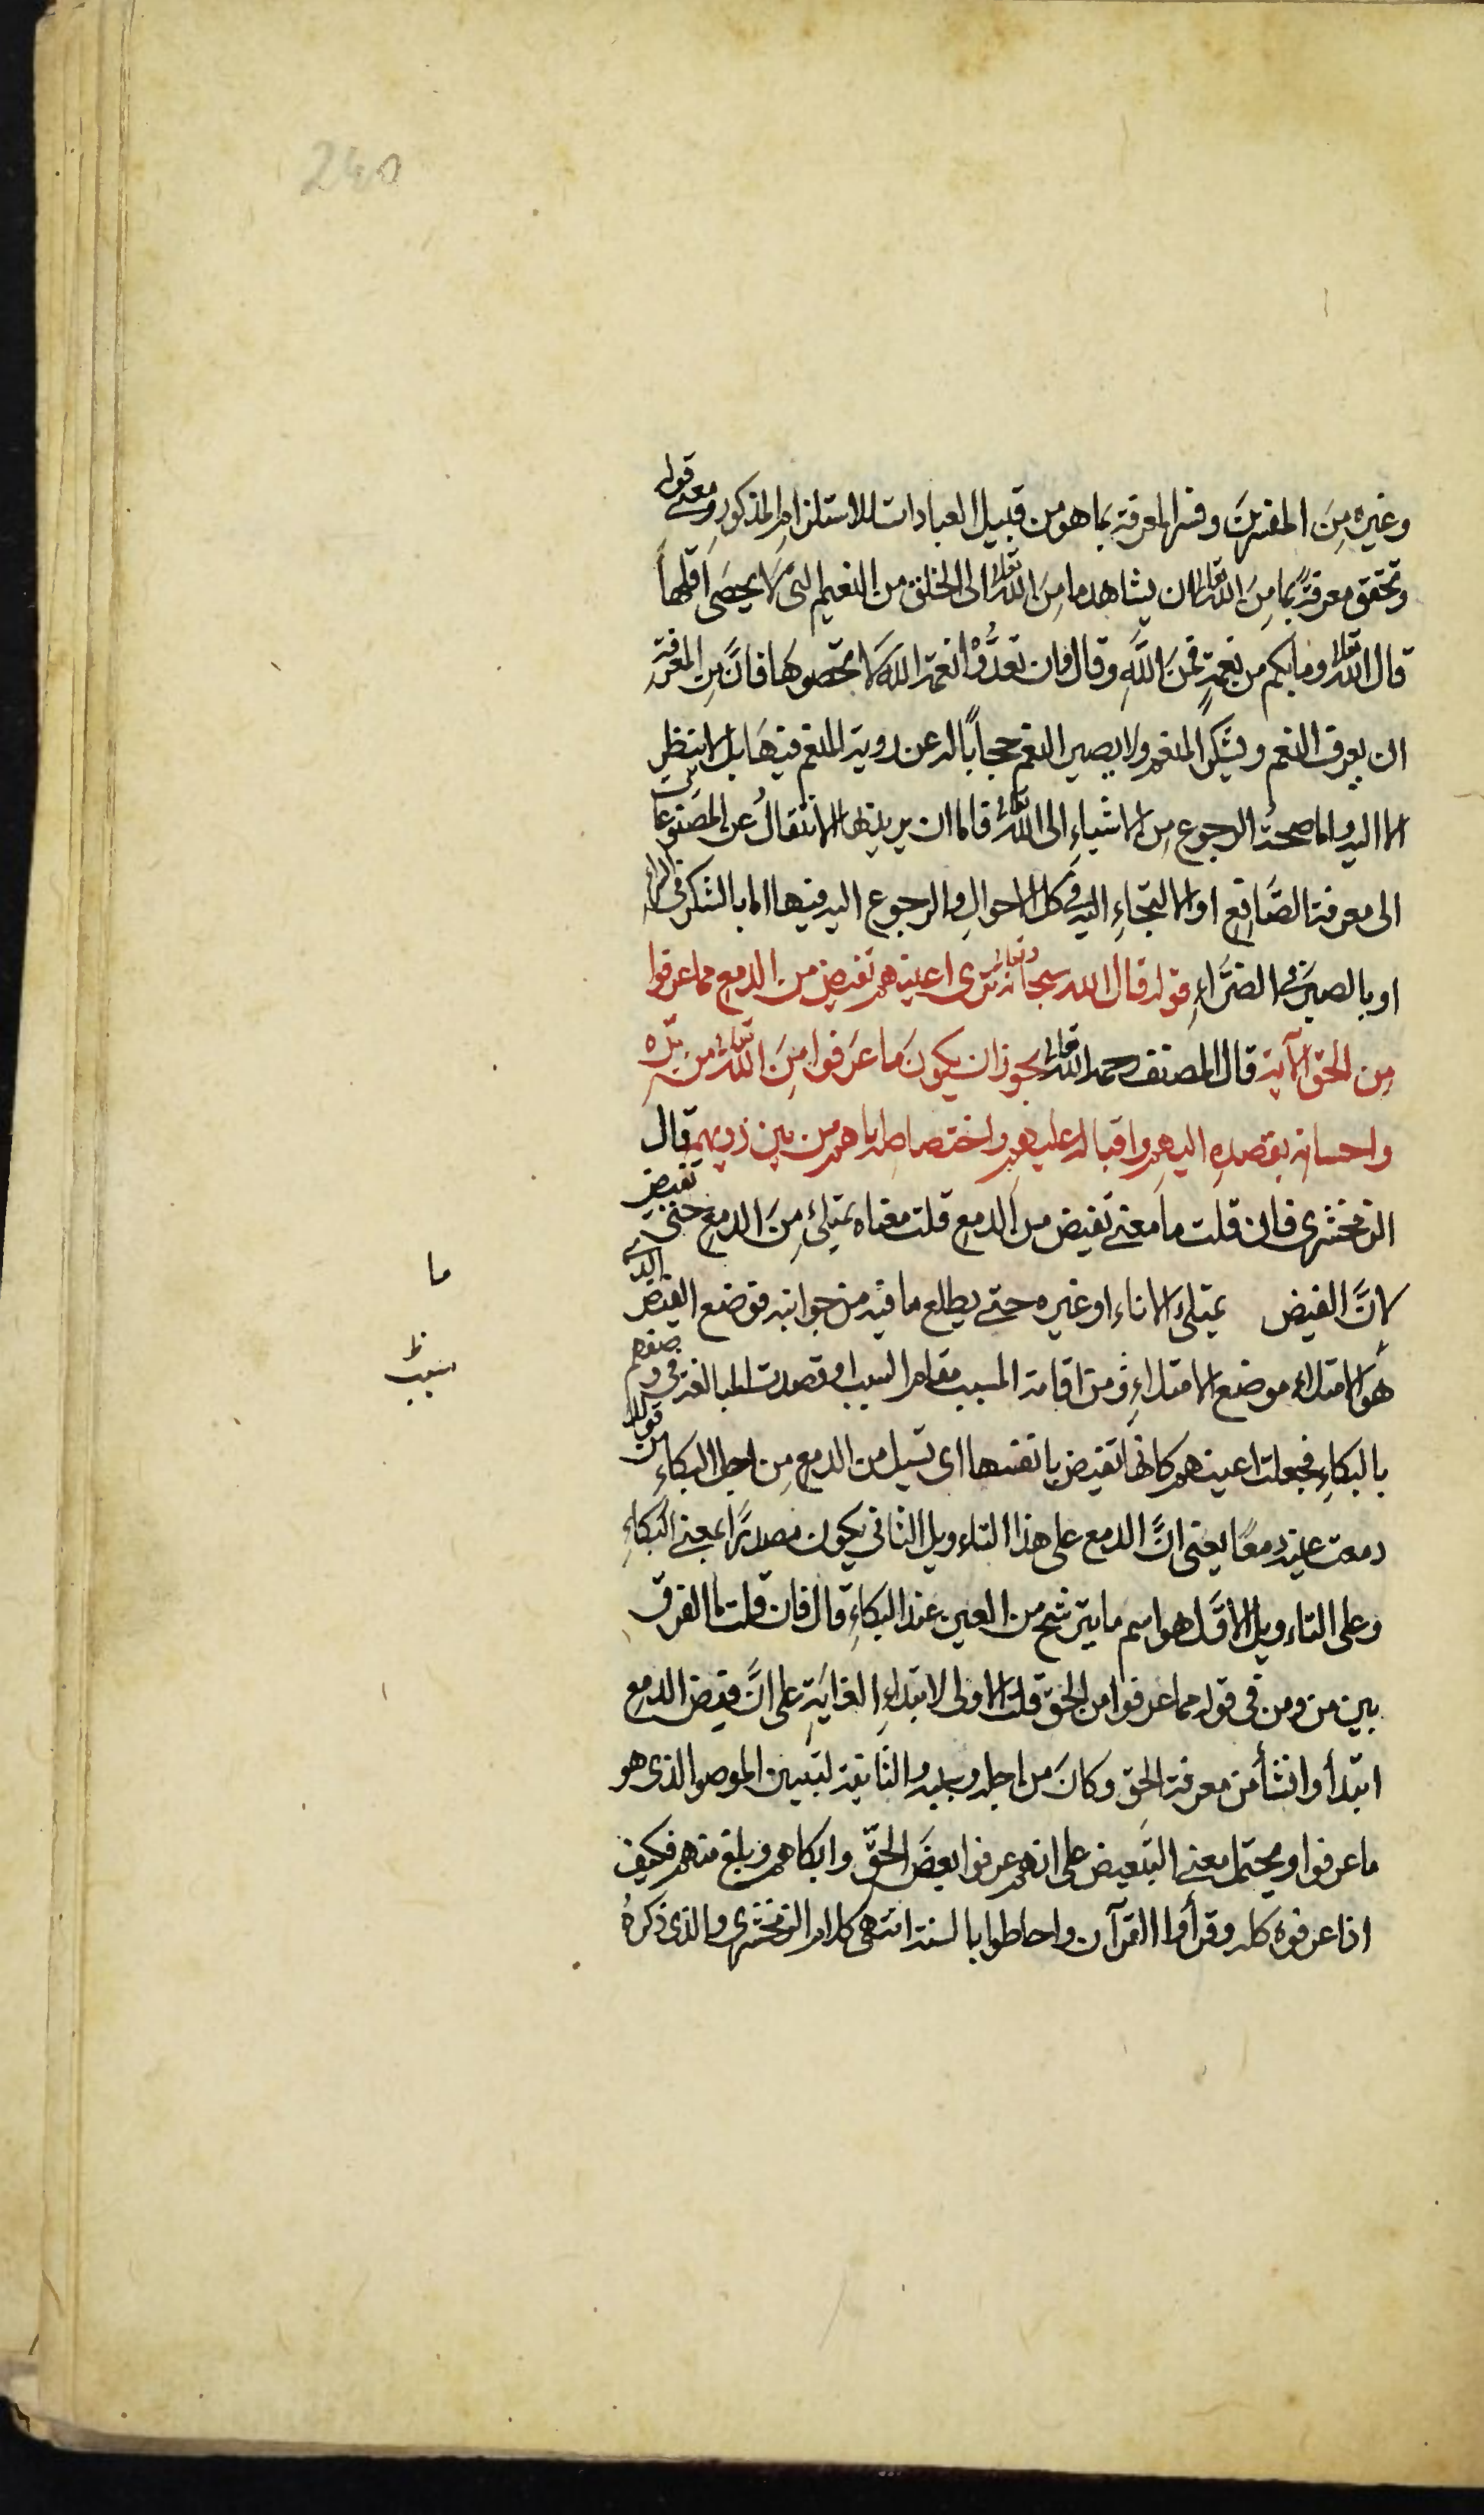 240
وغيره مِنَ المفسرينَ وفسر المعرفة بما هو من قبيل العبادات للاستلزام المذكورِ ومعنى قوله
وتحقق معرفةً بما مِنَ الله تعالى ان يشاهد ما مِنَ الله تعالى الى الخلق من النعيم التى لا يحصَى اقلها
قال الله تعالى وما بكم من نعمةٍ فمن اللهِ وقال وان تعدُّوا نعمة الله لا تحصوها فانَّ مِن المعرفة
ان يعرف النعم ويشكر المنعم ولا يصير النعم حجاباً له عن روية المنعم فيها بل لا ينظر
الا اليه واما صحة الرجوع مِن الاشياءِ الى الله تعالى فاما ان يريد بها الانتقالُ عن المصنوعات
الى معرفة الصَّانِع او الالتجاءِ اليه فى كل الاحوالِ والرجوع اليه فيها اما بالشكر فى السراء
او بالصبر فى الضرَّاءِ قوله قال الله سبحانه وتعالى ترى اعينهم تفيض من الدمع مما عرفوا
مِن الحق الآية قال المصنف رحمه الله تعالى يجوز ان يكونَ ما عرفوا مِنَ الله تعالى من برّه
واحسانه بقصدِه اليهم واقباله عليهم واختصاصه اياهم من بين ذويهم قال
الزمخشرى فان قلت ما معنى تفيض من الدمع قلت معناه تمتلئ مِنَ الدمع حتى تفيض
لانَّ الفيض يمتلئ الاناء او غيره حتى يطلع ما فيه من جوانبه فوضع الفيض الذى
هو الامتلاء موضع الامتلاءِ وُ من اقامة المسبب مقام السبب او قصدت المبالغة فى وصفهم
بالبكاءِ فجعلت اعينهم كانها تفيض بانفسها اى تسيل من الدمع مِن اجل البكاءِ من قولك
دمعت عينه دمعًا يعنى انَّ الدمع على هذا التاءويل الثانى يكون مصدرًا بمعنى البكاءِ
وعلى التاءويل الاوَّل هو اسم ما يترشح من العين عند البكاءِ قال فان قلت ما الفرق
بين من ومن فى قوله مما عرفوا من الحق قلت الاولى لابتداءِ الغايَةِ على انَّ فيض الدمع
ابتدأ وانشأ من معرفة الحق وكانَ من اجله وبسببه والثانية لتبيين الموصول الذى هو
ما عرفوا ويحتمل معنى التَبعيض على انهم عرفوا بعضَ الحقّ وابكاهم وبلغ منهم فكيف
اذا عرفوه كله وقرأوا القرآن واحاطوا بالسنة انتهى كلام الزمخشرى والذى ذكرهُ
ما
ظ
سبب